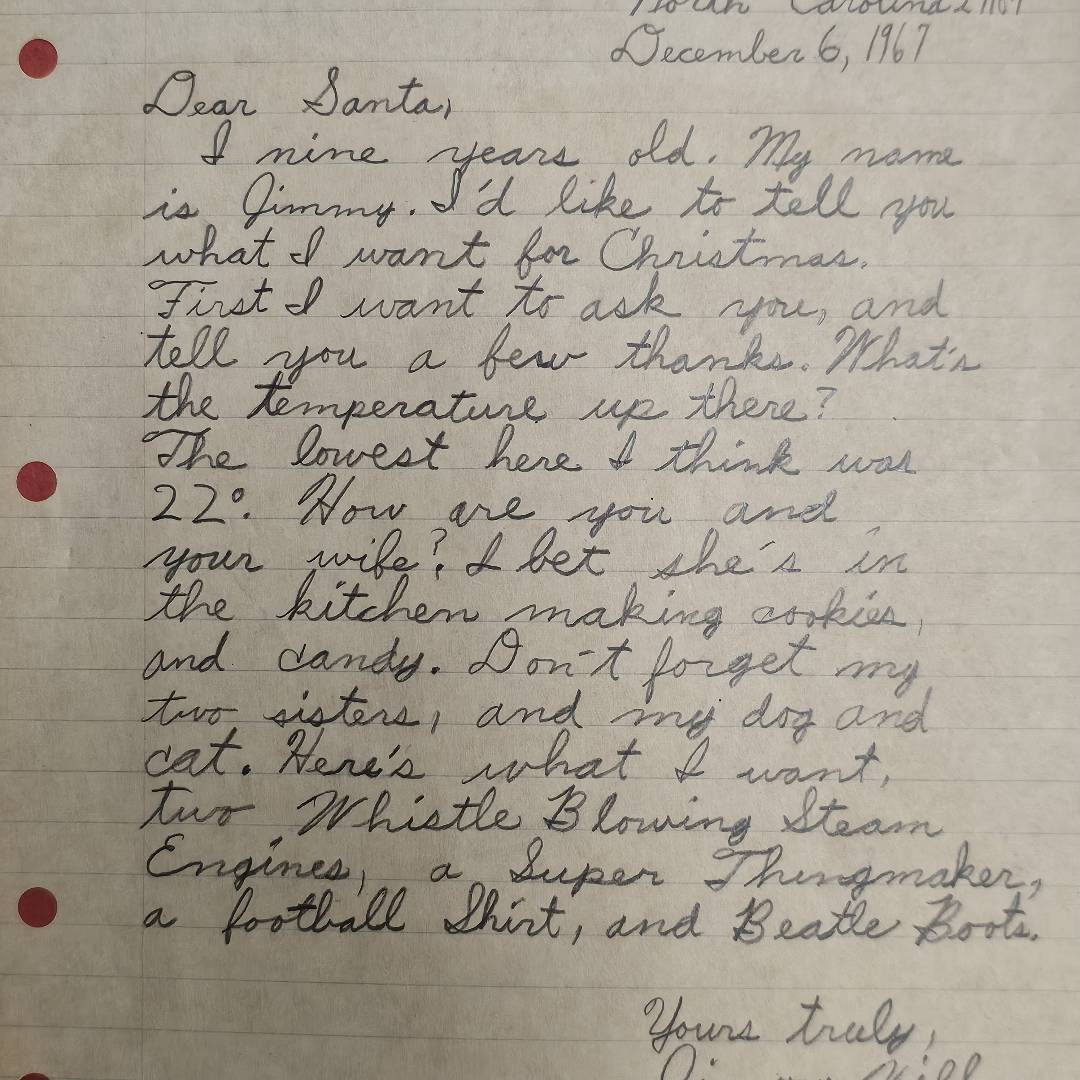 North Carolina
December 6, 1967
Dear Santa,
I nine years old. My name
is Jimmy. I'd like to tell you
what I want for Christmas.
First I want to ask you, and
tell you a few thanks. What's
the temperature up there?
The lowest here I think was
22°. How are you and
your wife? I bet she's in
the kitchen making cookies,
and candy. Don't forget my
two sisters, and my dog and
cat. Here's what I want,
two Whistle Blowing Steam
Engines, a Super Thingmaker,
a football Shirt, and Beatle Boots.
Yours truly,